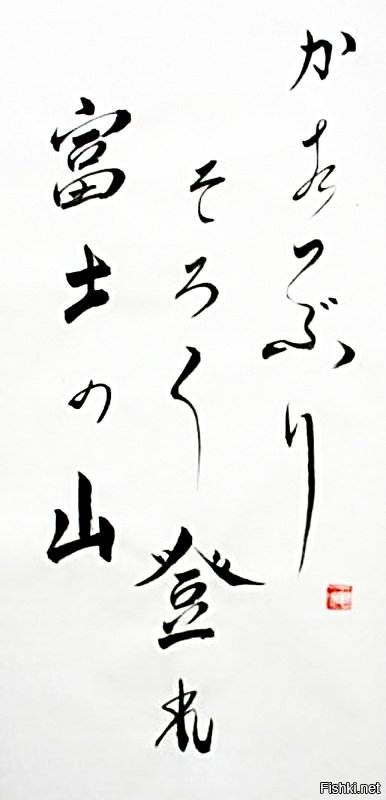 かたつぶり
そろ〱登れ
富士の山
Fishki.net